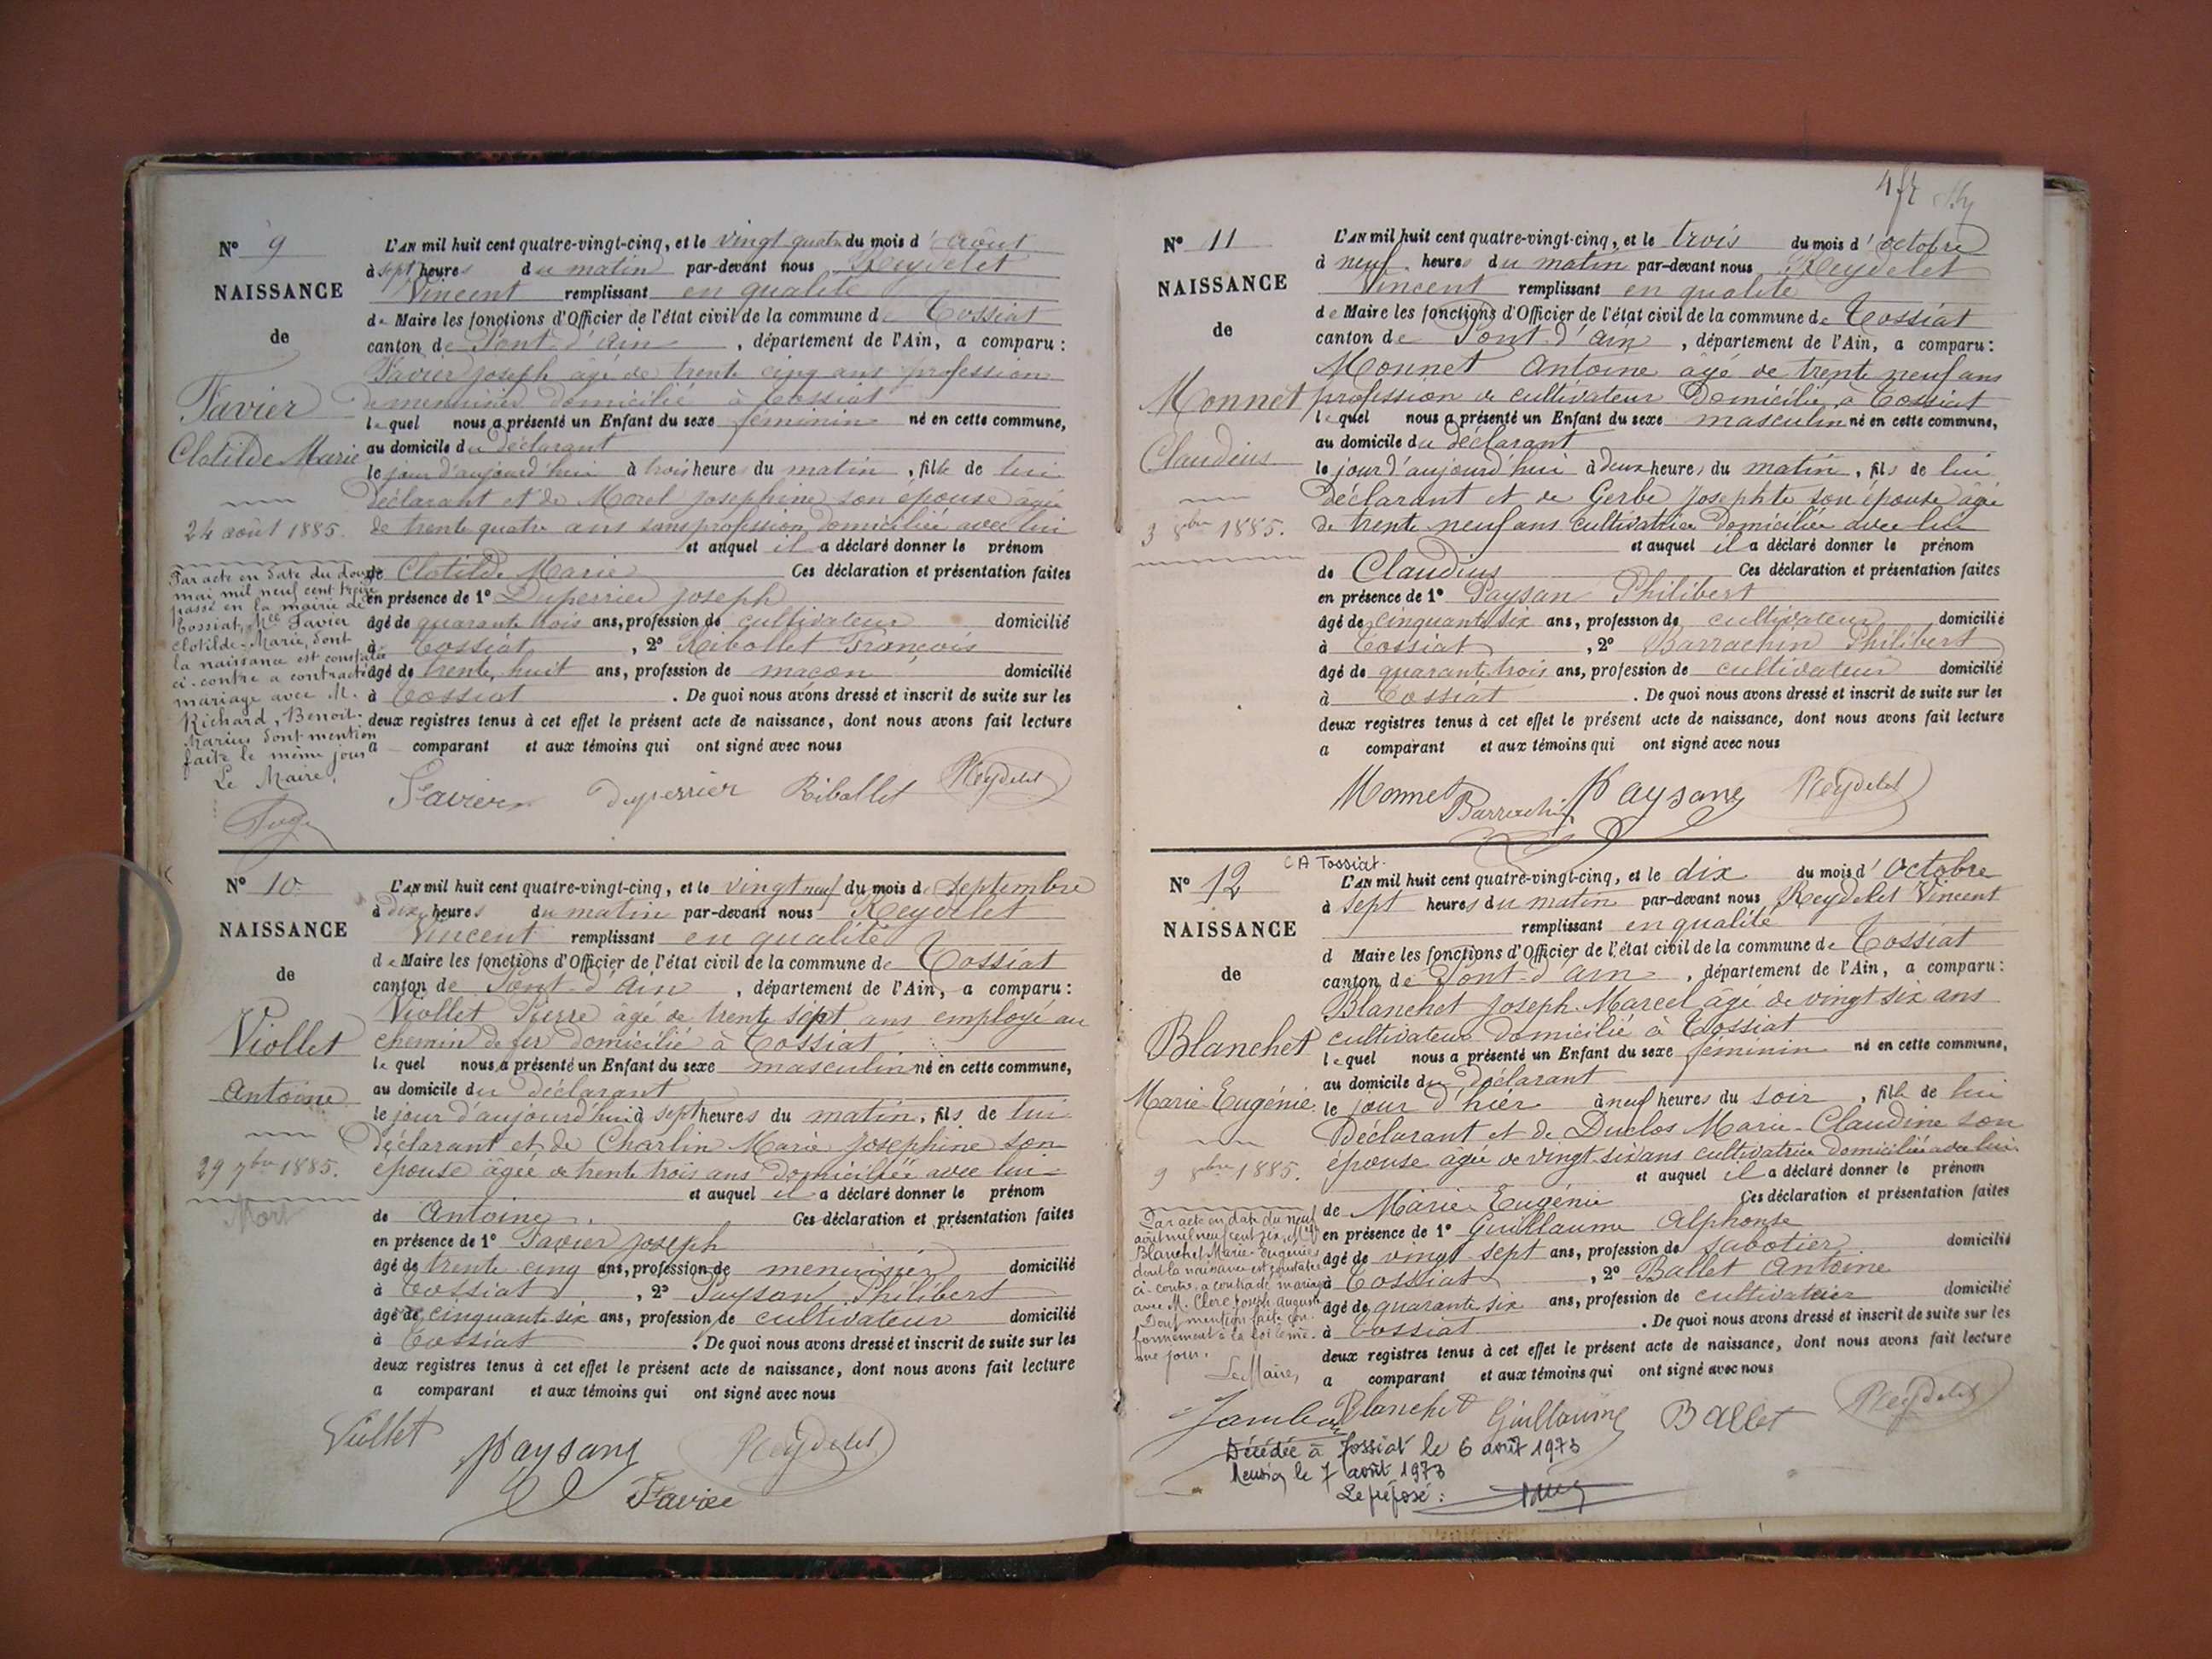 N° 9
NAISSANCE
de
Favier
Clotilde Marie
24 août 1885.
Par acte en date du douze
mai mil neuf cent treize
passé en la mairie de
Tossiat, Mlle Favier
Clotilde-Marie, dont
la naissance est constatée
ci-contre a contracté
mariage avec M.
Richard, Benoit-
Marius dont mention
faite le même jour
Le Maire,
L'AN mil huit cent quatre-vingt-cinq, et le vingt quatre du mois d'août
à sept heures du matin par-devant nous Reydelet
Vincent remplissant en qualité
de Maire les fonctions d'Officier de l'état civil de la commune de Tossiat
canton de Pont-d'Ain, département de l'Ain, a comparu:
Favier Joseph âgé de trente cinq ans profession
de menuisier domicilié à Tossiat
lequel nous a présenté un Enfant du sexe féminin né en cette commune,
au domicile du déclarant
le jour d'aujourd'hui à trois heures du matin, fille de lui
déclarant et de Morel Josephine son épouse agée
de trente quatre ans sans profession domiciliée avec lui
et auquel il a déclaré donner le prénom
de Clotilde Marie Ces déclaration et présentation faites
en présence de 1° Duperrier Joseph
âgé de quarante trois ans, profession de cultivateur domicilié
à Tossiat, 2° Ribollet François
âgé de trente huit ans, profession de maçon domicilié
à Tossiat. De quoi nous avons dressé et inscrit de suite sur les
deux registres tenus à cet effet le présent acte de naissance, dont nous avons fait lecture
a comparant et aux témoins qui ont signé avec nous
Favier Duperrier Ribollet Reydelet
N° 10
NAISSANCE
de
Viollet
Antoine
29 7bre 1885.
Mort
L'AN mil huit cent quatre-vingt-cinq, et le vingt neuf du mois de Septembre
à dix heures du matin par-devant nous Reydelet
Vincent remplissant en qualité
de Maire les fonctions d'Officier de l'état civil de la commune de Tossiat
canton de Pont-d'Ain, département de l'Ain, a comparu:
Viollet Pierre âgé de trente sept ans employé au
chemin de fer domicilié à Tossiat
lequel nous a présenté un Enfant du sexe masculin né en cette commune,
au domicile du déclarant
le jour d'aujourd'hui à sept heures du matin, fils de lui
déclarant et de Charlin Marie Josephine son
épouse âgée de trente trois ans domiciliée avec lui
et auquel il a déclaré donner le prénom
de Antoine. Ces déclaration et présentation faites
en présence de 1° Favier Joseph
âgé de trente cinq ans, profession de menuisier domicilié
à Tossiat, 2° Paysan Philibert
âgé de cinquante six ans, profession de cultivateur domicilié
à Tossiat. De quoi nous avons dressé et inscrit de suite sur les
deux registres tenus à cet effet le présent acte de naissance, dont nous avons fait lecture
a comparant et aux témoins qui ont signé avec nous
Viollet Paysan Reydelet
Favier
N° 11
NAISSANCE
de
Monnet
Claudius
3 8bre 1885.
L'AN mil huit cent quatre-vingt-cinq, et le trois du mois d'octobre
à neuf heures du matin par-devant nous Reydelet
Vincent remplissant en qualité
de Maire les fonctions d'Officier de l'état civil de la commune de Tossiat
canton de Pont-d'Ain, département de l'Ain, a comparu:
Monnet Antoine âgé de trente neuf ans
profession de cultivateur domicilié à Tossiat
lequel nous a présenté un Enfant du sexe masculin né en cette commune,
au domicile du déclarant
le jour d'aujourd'hui à deux heures du matin, fils de lui
déclarant et de Gerbe Josephte son épouse âgée
de trente neuf ans cultivatrice domiciliée avec lui
et auquel il a déclaré donner le prénom
de Claudius Ces déclaration et présentation faites
en présence de 1° Paysan Philibert
âgé de cinquante six ans, profession de cultivateur domicilié
à Tossiat, 2° Barrachin Philibert
âgé de quarante trois ans, profession de cultivateur domicilié
à Tossiat. De quoi nous avons dressé et inscrit de suite sur les
deux registres tenus à cet effet le présent acte de naissance, dont nous avons fait lecture
a comparant et aux témoins qui ont signé avec nous
Monnet Barrachin Paysan Reydelet
N° 12
NAISSANCE
de
Blanchet
Marie Eugénie
9 8bre 1885.
Par acte en date du neuf
août mil neuf cent six, Mlle
Blanchet Marie-Eugénie
dont la naissance est constatée
ci-contre, a contracté mariage
avec M. Clerc Joseph Auguste
Dont mention faite con-
formément à la loi le mê-
me jour.
Le Maire,
C A Tossiat.
L'AN mil huit cent quatre-vingt-cinq, et le dix du mois d'Octobre
à sept heures du matin par-devant nous Reydelet Vincent
remplissant en qualité
d Maire les fonctions d'Officier de l'état civil de la commune de Tossiat
canton de Pont-d'Ain, département de l'Ain, a comparu:
Blanchet Joseph Marcel âgé de vingt six ans
cultivateur domicilié à Tossiat
lequel nous a présenté un Enfant du sexe féminin né en cette commune,
au domicile du déclarant
le jour d'hier à neuf heures du soir, fille de lui
déclarant et de Duclos Marie-Claudine son
épouse agée de vingt-six ans cultivatrice domiciliée avec lui
et auquel il a déclaré donner le prénom
de Marie Eugénie Ces déclaration et présentation faites
en présence de 1° Guillaume Alphonse
âgé de vingt-sept ans, profession de sabotier domicilié
à Tossiat, 2° Ballet Antoine
âgé de quarante six ans, profession de cultivateur domicilié
à Tossiat. De quoi nous avons dressé et inscrit de suite sur les
deux registres tenus à cet effet le présent acte de naissance, dont nous avons fait lecture
a comparant et aux témoins qui ont signé avec nous
Blanchet Guillaume Ballet Reydelet
Décédée à Tossiat le 6 août 1973
le 7 août 1973
Le préposé: